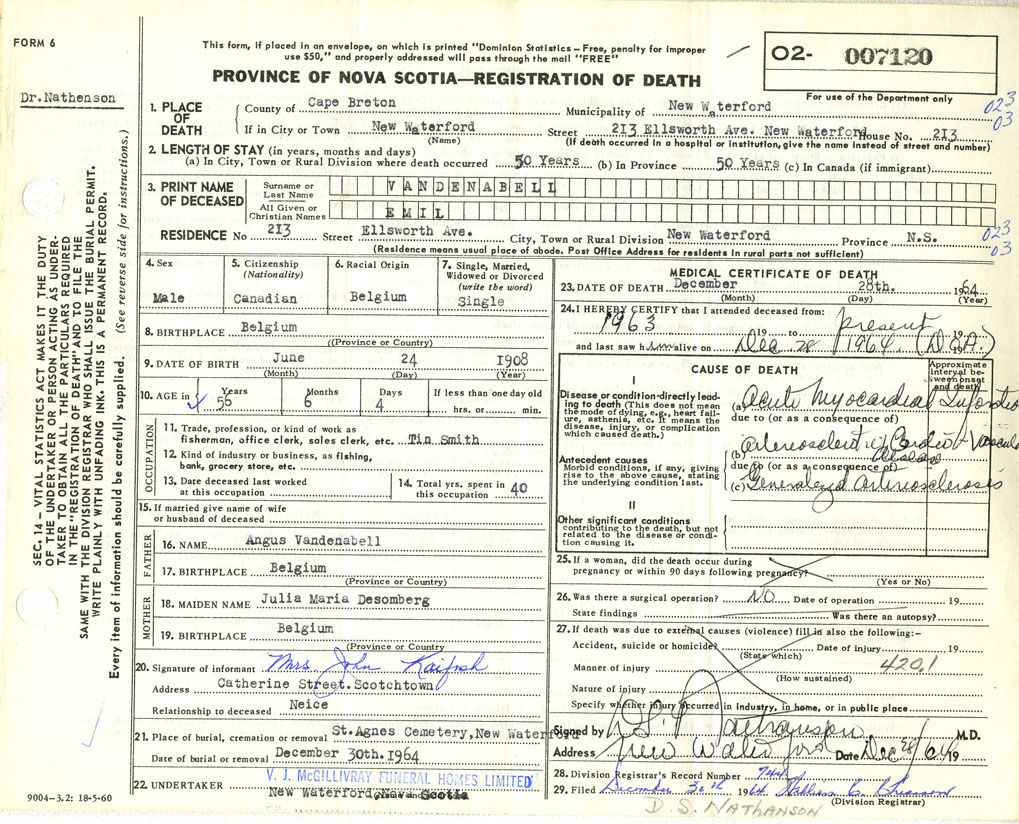 FORM 6
Dr. Nathenson
This form, if placed in an envelope, on which is printed "Dominion Statistics – Free, penalty for improper
use $50," and properly addressed will pass through the mail "FREE"
PROVINCE OF NOVA SCOTIA—REGISTRATION OF DEATH
O2- 007120
For use of the Department only
023
03
1. PLACE OF DEATH
County of Cape Breton Municipality of New Waterford
If in City or Town New Waterford Street 213 Ellsworth Ave. New Waterford House No. 213
(Name) (If death occurred in a hospital or institution, give the name instead of street and number)
2. LENGTH OF STAY (in years, months and days)
(a) In City, Town or Rural Division where death occurred 50 Years (b) In Province 50 Years (c) In Canada (if immigrant)
3. PRINT NAME OF DECEASED
Surname or Last Name VANDENABELL
All Given or Christian Names EMIL
RESIDENCE No 213 Street Ellsworth Ave. City, Town or Rural Division New Waterford Province N.S.
023
03
(Residence means usual place of abode. Post Office Address for residents in rural parts not sufficient)
4. Sex
Male
5. Citizenship
(Nationality)
Canadian
6. Racial Origin
Belgium
7. Single, Married,
Widowed or Divorced
(write the word)
Single
8. BIRTHPLACE Belgium
((Province or Country)
9. DATE OF BIRTH June 24 1908
(Month) (Day) (Year)
10. AGE in
Years Months Days If less than one day old
56 6 4 hrs. or min.
OCCUPATION
11. Trade, profession, or kind of work as
fisherman, office clerk, sales clerk, etc. Tin Smith
12. Kind of industry or business, as fishing,
bank, grocery store, etc.
13. Date deceased last worked
at this occupation
14. Total yrs. spent in
this occupation 40
15. If married give name of wife
or husband of deceased
FATHER
16. NAME Angus Vandenabell
17. BIRTHPLACE Belgium
(Province or Country)
MOTHER
18. MAIDEN NAME Julia Maria Desomberg
19. BIRTHPLACE Belgium
(Province or Country
20. Signature of informant Mrs. John
Address Catherine Street.Scotchtown
Relationship to deceased Neice
21. Place of burial, cremation or removal St.Agnes Cemetery,New Waterford
Date of burial or removal December 30th.1964
22. UNDERTAKER V. J. McGILLIVRAY FUNERAL HOMES LIMITED
New Waterford, Nova Scotia
MEDICAL CERTIFICATE OF DEATH
23. DATE OF DEATH December 28th. 1964
(Month) (Day) (Year)
24. I HEREBY CERTIFY that I attended deceased from:
1963 19 to present 19
and last saw him alive on Dec 28 1964. (D.O.A.) 19
CAUSE OF DEATH
Approximate
interval be-
tween onset
and death
I
Disease or condition directly lead-
ing to death (This does not mean
the mode of dying, e.g., heart fail-
ure, asthenia, etc. It means the
disease, injury, or complication
which caused death.)
(a) Acute Myocardial Infarction
due to (or as a consequence of)
Antecedent causes
Morbid conditions, if any, giving
rise to the above cause, stating
the underlying condition last.
(b) Arteriosclerotic Cardio-Vascular
disease
due to (or as a consequence of)
(c) Generalized arteriosclerosis
II
Other significant conditions
contributing to the death, but not
related to the disease or condi-
tion causing it.
25. If a woman, did the death occur during
pregnancy or within 90 days following pregnancy?
(Yes or No)
26. Was there a surgical operation? NO Date of operation 19
State findings Was there an autopsy?
27. If death was due to external causes (violence) fill in also the following:–
Accident, suicide or homicide? Date of injury 19
(State which)
Manner of injury 420.1
(How sustained)
Nature of injury
Specify whether injury occurred in industry, in home, or in public place
Signed by D.S. Nathanson M.D.
Address New Waterford Date Dec 28/64 19
28. Division Registrar's Record Number 744
29. Filed December 30th 1964 William C.
(Division Registrar)
D. S. NATHANSON
SEC. 14 – VITAL STATISTICS ACT MAKES IT THE DUTY
OF THE UNDERTAKER OR PERSON ACTING AS UNDER-
TAKER TO OBTAIN ALL THE PARTICULARS REQUIRED
IN THE "REGISTRATION OF DEATH" AND TO FILE THE
SAME WITH THE DIVISION REGISTRAR WHO SHALL ISSUE THE BURIAL PERMIT.
WRITE PLAINLY WITH UNFADING INK. THIS IS A PERMANENT RECORD.
Every item of information should be carefully supplied. (See reverse side for instructions.)
9004-3.2: 18-5-60